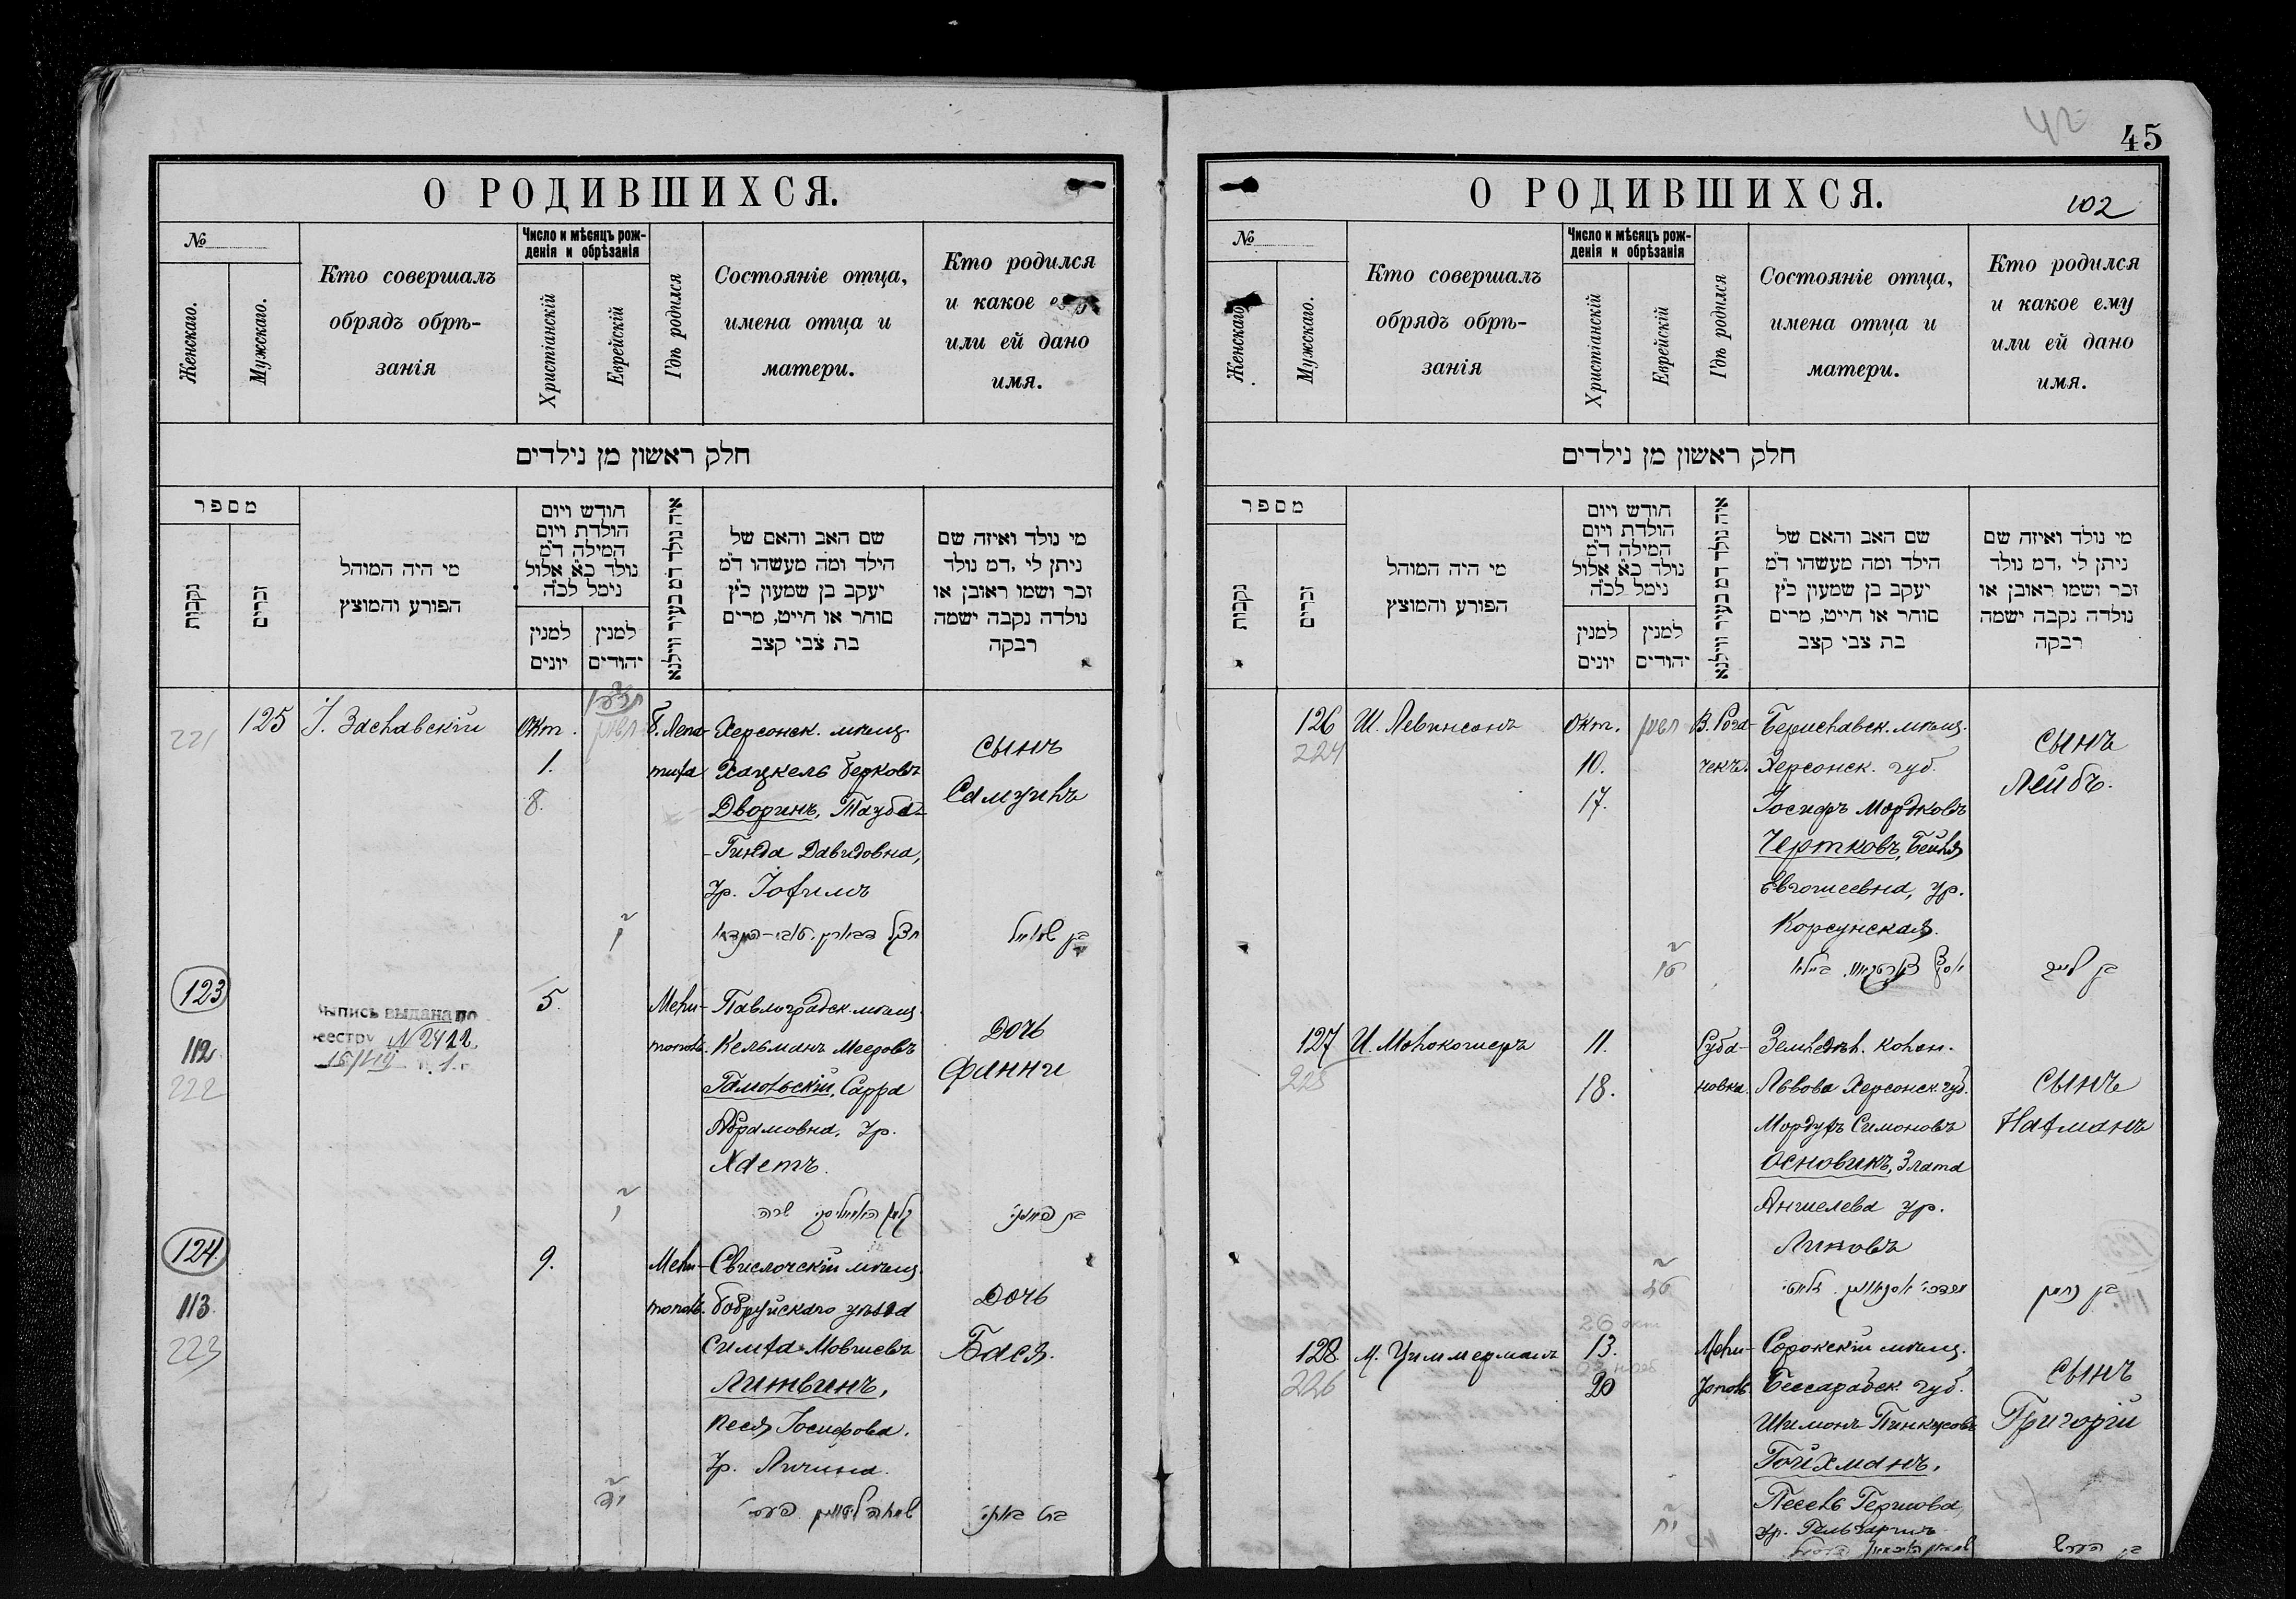 О РОДИВШИХСЯ.
№
Женскаго.
Мужскаго.
Кто совершалъ
обрядъ обрѣ-
занія
Число и мѣсяцъ рож-
денія и обрѣзанія
Христіанскій
Еврейскій
Гдѣ родился
Состояніе отца,
имена отца и
матери.
Кто родился
и какое
или ей дано
имя.
חלק ראשון מן נילדים
מספר
נקבות
זכרים
מי היה המוהל
הפורע והמוצץ
חודש ויום
הולדת ויום
המילה ד״מ
נולד כ״א אלול
נימל לכ״ה
למנין
יונים
למנין
יהודים
איה נולד דמ בעיר ווילנא
שם האב והאם של
הילד ומה מעשהו ד״מ
יעקב בן שמעון כ״ץ
סוחר או חייט, מרים
בת צבי קצב
מי נולד ואיזה שם
ניתן לי, דמ נולד
זכר ושמו ראובן או
נולדה נקבה ישמה
רבקה
221
125
І. Заславскій
Окт.
1.
8.
Б. Лепа-
тиха
Херсонск. мѣщ.
Хацкель Берковъ
Дворинъ, Тауба-
-Гинда Давидовна,
ур. Іохимъ
сынъ
Самуилъ
123
112
222
выдана по
№ 2422
5.
Мели-
тополь.
Павлоградск. мѣщ.
Кельманъ Мееровъ
Гамольскій, Сарра
Абрамовна, ур.
Хаетъ.
Дочь
Фанни
124.
113.
223
9.
Мели-
тополь.
Свислочскій мѣщ.
Бобруйскаго уѣзда
Симха Мовшевъ
Литвинъ,
Песя Іосифова.
Ур. Личина.
Дочь
Бася.
45
О РОДИВШИХСЯ.
102
№
Женскаго.
Мужскаго.
Кто совершалъ
обрядъ обрѣ-
занія
Число и мѣсяцъ рож-
денія и обрѣзанія
Христіанскій
Еврейскій
Гдѣ родился
Состояніе отца,
имена отца и
матери.
Кто родился
и какое ему
или ей дано
имя.
חלק ראשון מן נילדים
מספר
נקבות
זכרים
מי היה המוהל
הפורע והמוצץ
חודש ויום
הולדת ויום
המילה ד״מ
נולד כ״א אלול
נימל לכ״ה
למנין
יונים
למנין
יהודים
איה נולד דמ בעיר ווילנא
שם האב והאם של
הילד ומה מעשהו ד״מ
יעקב בן שמעון כ״ץ
סוחר או חייט, מרים
בת צבי קצב
מי נולד ואיזה שם
ניתן לי, דמ נולד
זכר ושמו ראובן או
נולדה נקבה ישמה
רבקה
126
224
Ш. Левинсонъ
Окт.
10.
17.
В. Рога-
чекъ.
Бериславск. мѣщ.
Херсонск. губ.
Іосифъ Мордковъ
Чертковъ, Бейля
ур.
Корсунская.
сынъ
Лейбъ.
בן לייב
127
225
И. Молокошеръ
11.
18.
Руба-
новка.
Земледѣл. колон.
Львова Херсонск. губ.
Мордухъ Симоновъ
Основикъ, Злата
Аншелева ур.
Линовъ
сынъ
Нахманъ
בן נחמן
128.
226
М. Циммерманъ
13.
20
Мели-
тополь
Сорокскій мѣщ.
Бессарабск. губ.
Шимонъ Пинкусовъ
Гойхманъ,
Песель Гершова,
сынъ
Григорій